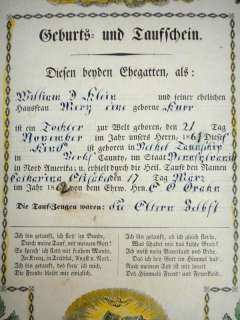 Geburts- und Taufschein.
Diesen beyden Ehegatten, als:
William D Klein und seiner ehelichen
Hausfrau Mary eine geborne Kurr
ist ein Tochter zur Welt geboren, den 21 Tag
November im Jahr unsers Herrn 1861 Dieses
Kind ist geboren in Bethel Taunschip
in Berks County, im Staat Pennsylvania
in Nord Amerika; u. erhielt durch die Heil. Tauf den Namen
Catharina Elisabeth den 17 Tag Merz
im Jahr 1862 von dem Ehrw. Hrn.
Die Tauf-Zeugen waren: die Eltern Selbst
Ich bin getauft, ich steh' im Bunde,
Durch meine Tauf' mit meinem Gott!
So sprech' ich stets mit frohem Munde,
In Kreuz, in Trübsal, Angst u. Noth.
Ich bin getauft, deß freu' ich mich,
Die Freude bleibt mir ewiglich.
Ich bin getauft, ob ich gleich sterbe,
Was schadet mir das kühle Grab?
Ich weiß mein Vaterland und Erbe,
Das ich bey Gott im Himmel hab'.
Nach meinem Tod ist mir bereit
Des Himmels Freud' und Feyerkleid.